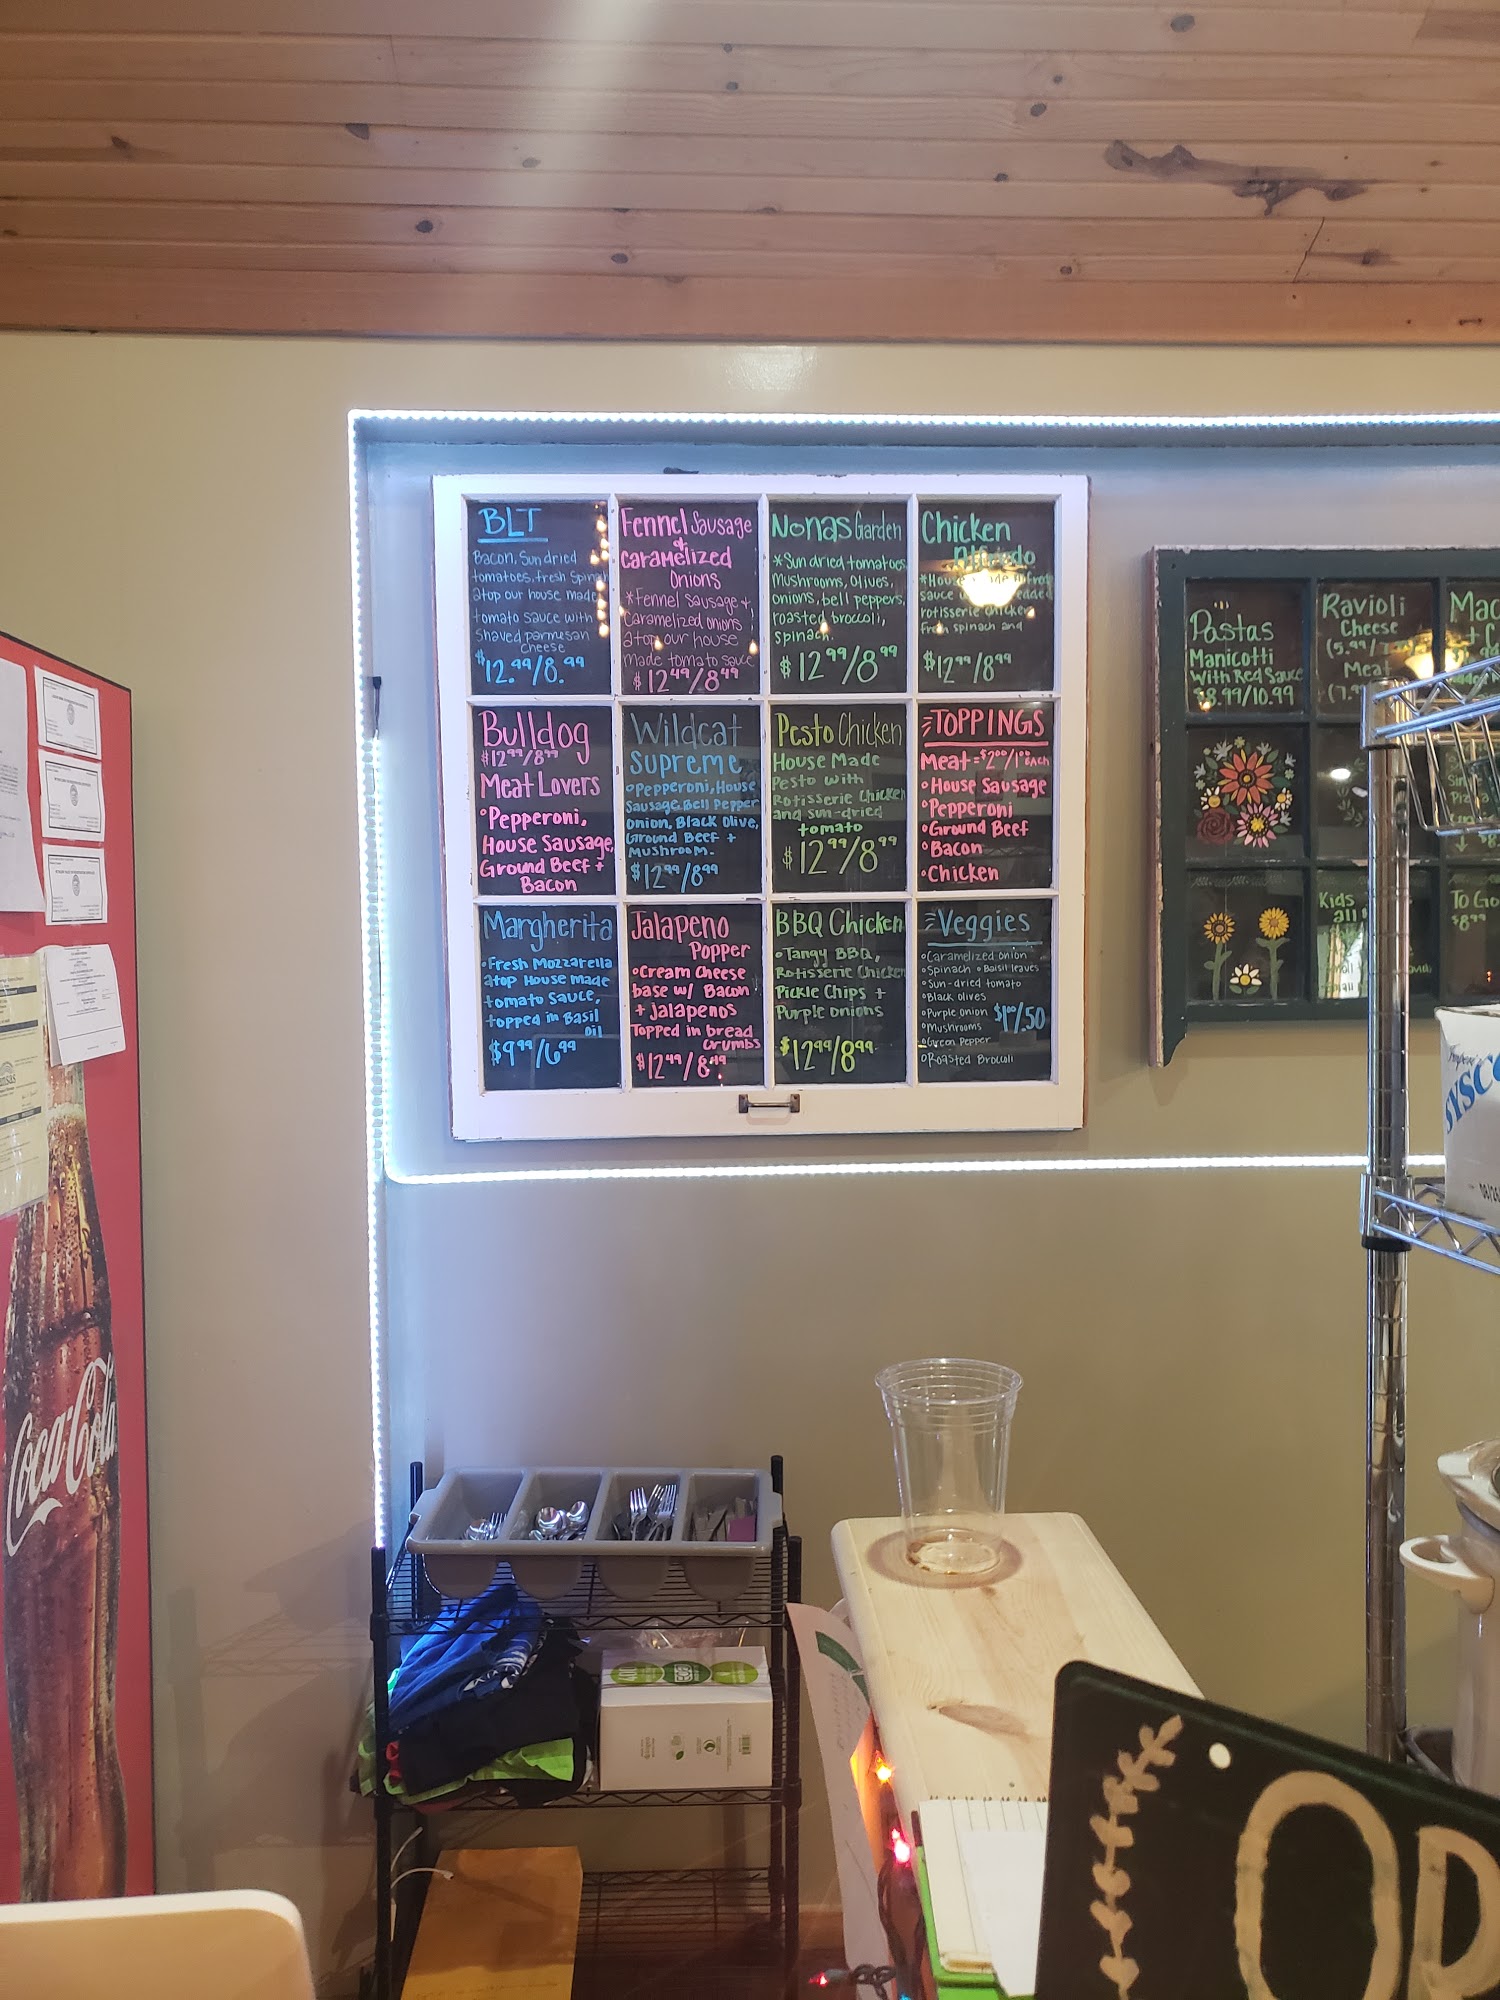 BLT
Bacon, Sundried
tomatoes, fresh Spinach
atop our house made
tomato sauce with
Shaved parmesan
cheese
$12.99/8.99
Fennel Sausage
&
Caramelized
Onions
*Fennel Sausage +
Caramelized onions
atop our house
Made tomato sauce
$12.49/8.49
Nonas Garden
*Sun dried tomatoes
Mushrooms, Olives,
onions, bell peppers,
roasted broccoli,
spinach.
$12.99/8.99
Chicken
Alfredo
*House made Alfredo
sauce
rotisserie chicken
fresh spinach and
$12.99/8.99
Bulldog
$12.99/8.99
Meat Lovers
•Pepperoni,
House Sausage,
Ground Beef +
Bacon
Wildcat
Supreme
•Pepperoni, House
Sausage, Bell Pepper
Onion, Black Olive,
Ground Beef +
Mushroom.
$12.99/8.99
Pesto Chicken
House Made
Pesto with
Rotisserie Chicken
and sun-dried
tomato
$12.99/8.99
TOPPINGS
Meat = $2.00/1.00 EACH
•House Sausage
•Pepperoni
•Ground Beef
•Bacon
•Chicken
Margherita
•Fresh Mozzarella
atop House made
tomato Sauce,
topped in Basil
Oil
$9.99/6.99
Jalapeno
Popper
•Cream Cheese
base w/ Bacon
+ Jalapenos
Topped in bread
Crumbs
$12.49/8.49
BBQ Chicken
•Tangy BBQ,
Rotisserie Chicken
Pickle Chips +
Purple Onions
$12.99/8.99
Veggies
•Caramelized onion
•Spinach •Basil leaves
•Sun-dried tomato
•Black olives
•Purple onion
•Mushrooms
$1.00/.50
•Green Pepper
•Roasted Broccoli
Pastas
Manicotti
With Red Sauce
$8.99/10.99
Ravioli
Cheese
(5.99/
Meat
(7.99
Mac
+ C
Kids
all
To Go
$8.99
Coca-Cola
SYSCO
08/26
OP